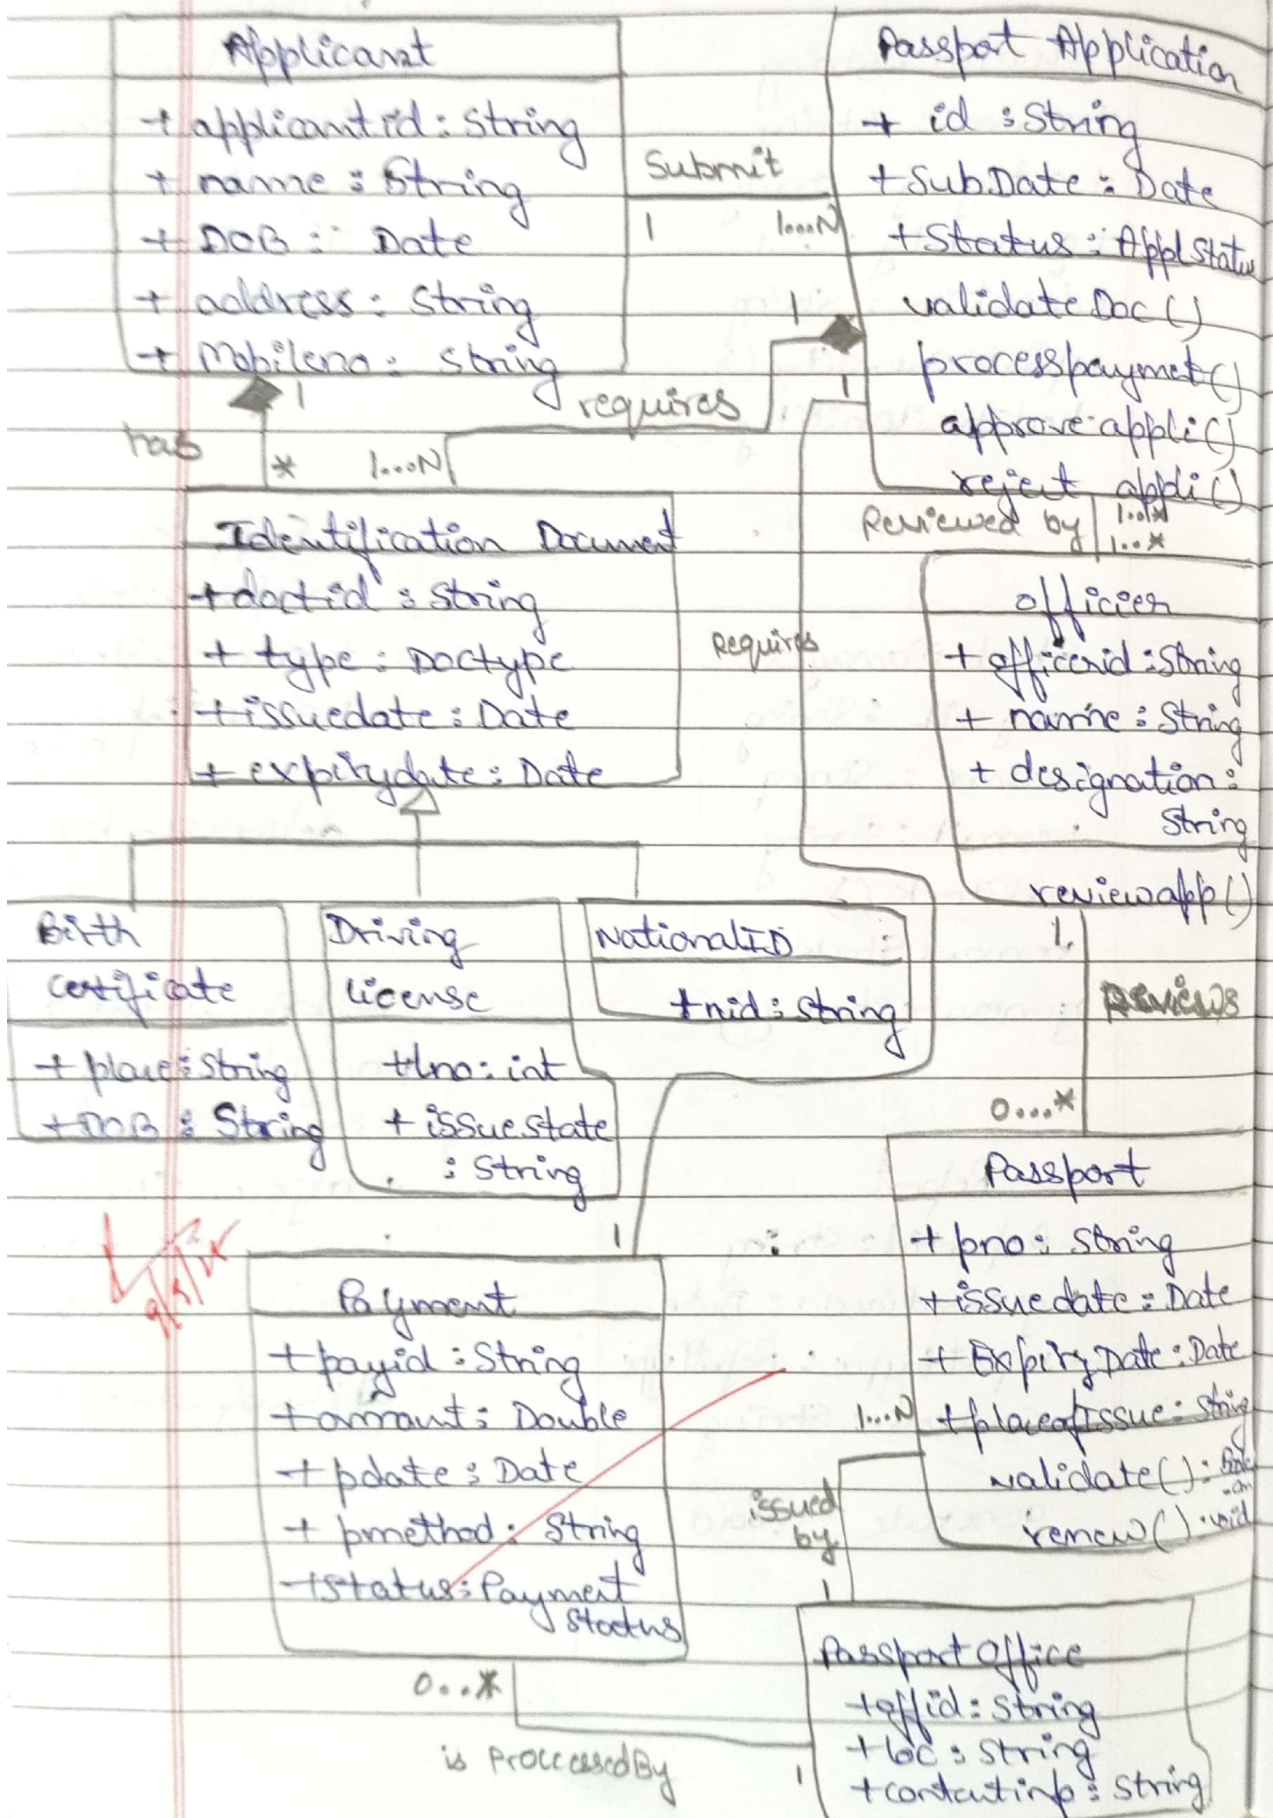 Applicant
+ applicantid : String
+ name : String
+ DOB : Date
+ address : String
+ Mobileno : String
Submit
1 1...N
Passport Application
+ id : String
+ Sub.Date : Date
+ Status : ApplStatus
validateDoc()
processpaymet()
approve appli()
reject appli()
1
1
requires
1...N
has
1
*
Reviewed by
1..*
1..*
Identification Document
+ doctid : String
+ type : Doctype
+ issuedate : Date
+ expirydate : Date
Requires
officer
+ officerid : String
+ name : String
+ designation :
String
reviewapp()
1.
Reviews
0...*
Birth
Certificate
+ place : String
+ DOB : String
Driving
License
+ lno : int
+ issue.state
: String
NationalID
+ nid : String
1
Payment
+ payid : String
+ amount : Double
+ pdate : Date
+ pmethod : String
+ status : Payment
Status
Passport
+ pno : String
+ issuedate : Date
+ ExpiryDate : Date
+ placeofIssue : String
validate() :
renew() : void
1...N
issued
by
1
0...*
is ProccessedBy
1
Passport Office
+ offid : String
+ loc : String
+ contactinfo : String